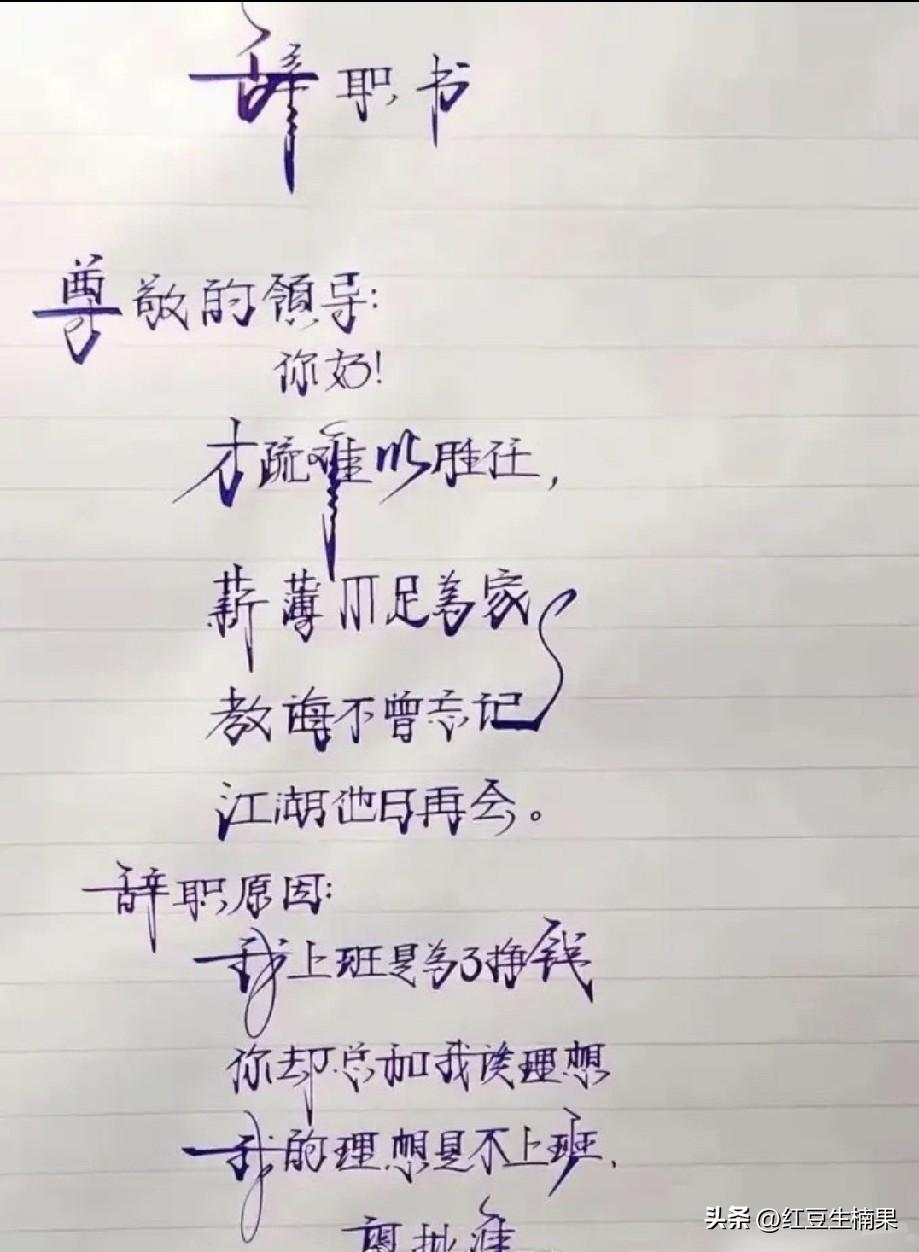 辞职书
尊敬的領导:
你好!
才疏难以胜任,
薪薄不足为家
教诲不曾忘记
江湖他日再会。
辞职原因:
我上班是为了挣钱
你却总和我谈理想
我的理想是不上班.
望批准
头条 @红豆生楠果